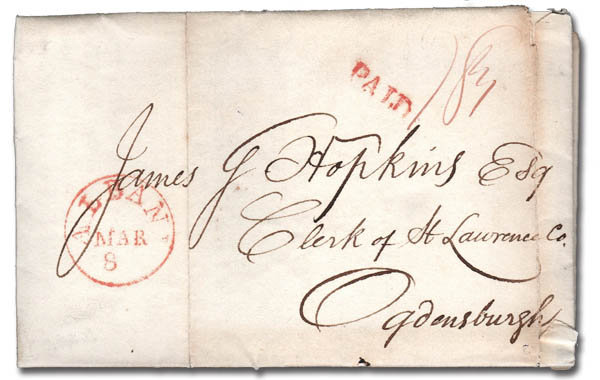 PAID 18¾
James G Hopkins Esq
ALBANY
MAR
8
Clerk of St Lawrence Co.
Ogdensburgh